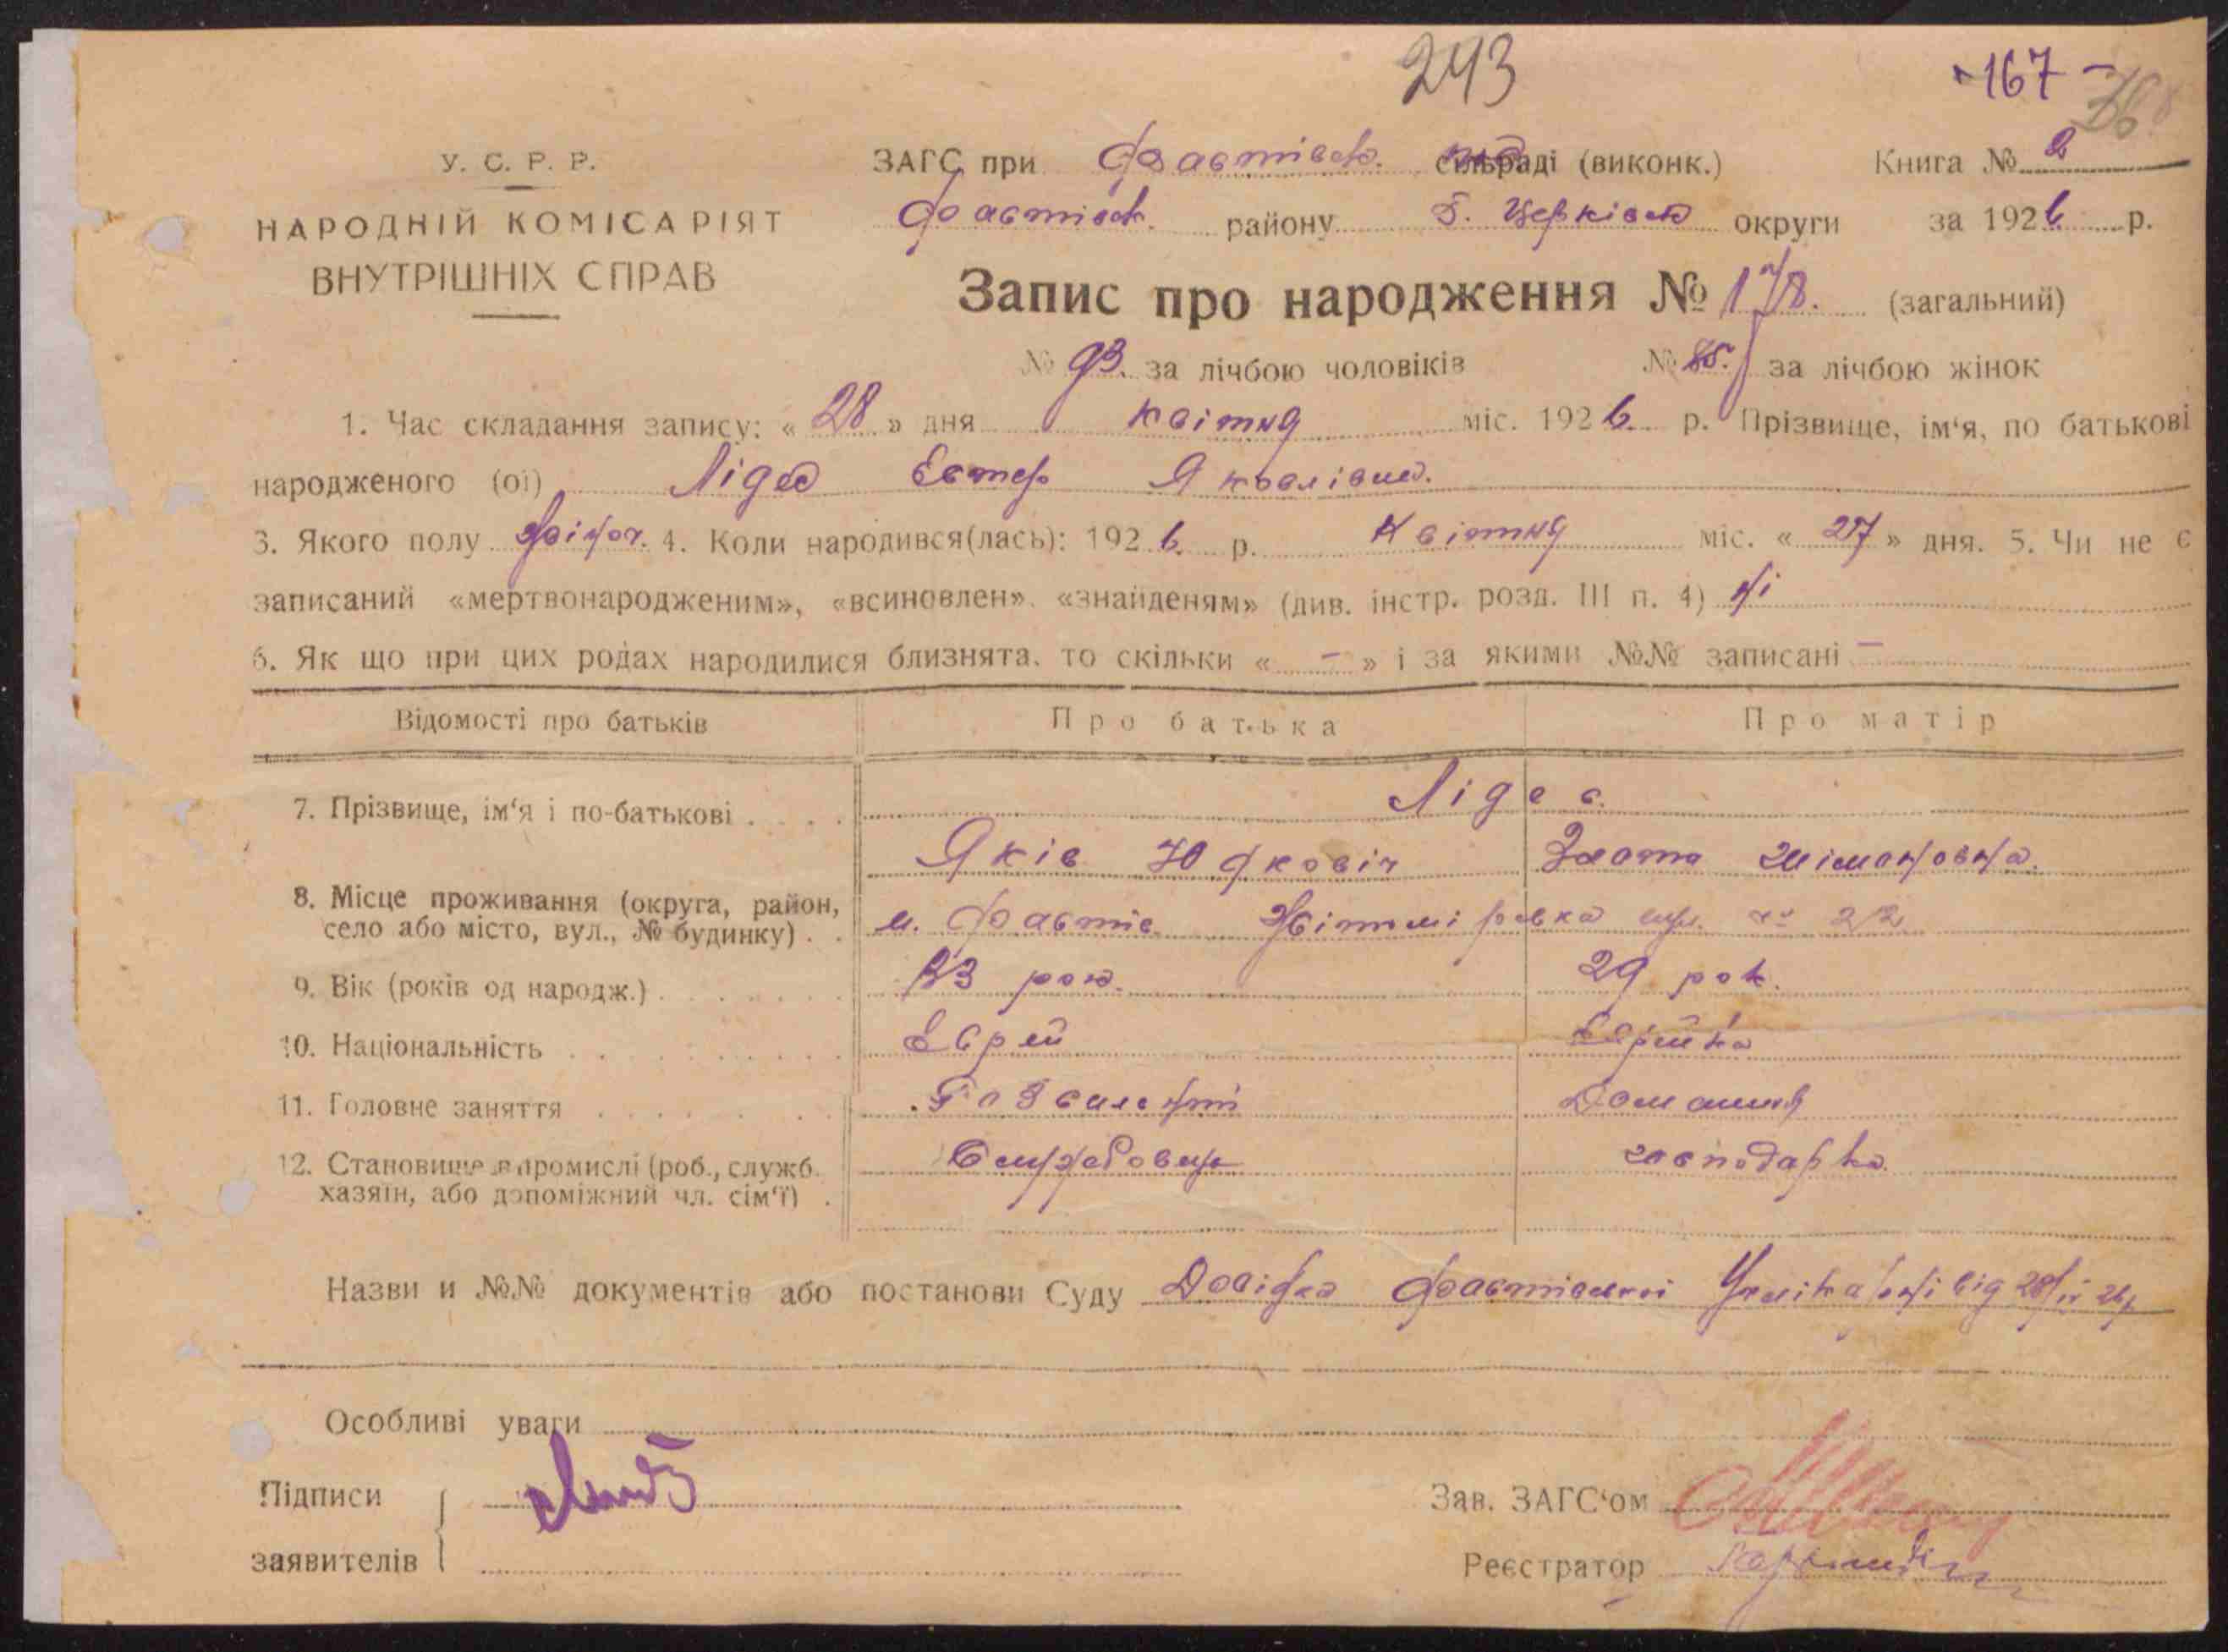 243
167
У. С. Р. Р.
НАРОДНІЙ КОМІСАРІЯТ
ВНУТРІШНІХ СПРАВ
ЗАГС при Фастівськ. сільраді (виконк.) Книга № 2
Фастівськ. району Б. Церківськ округи за 1926 р.
Запис про народження № 178. (загальний)
№ 93. за лічбою чоловіків № 85. за лічбою жінок
1. Час складання запису: « 28 » дня квітня міс. 1926. р. Прізвище, ім‘я, по батькові
народженого (ої) Лідес Естер Яковлівна.
3. Якого полу жіноч. 4. Коли народився(лась): 1926. р. Квітня міс. « 27 » дня. 5. Чи не є
записаний «мертвонародженим», «всиновлен», «знайденям» (див. інстр. розд. III п. 4) Ні
6. Як що при цих родах народилися близнята, то скільки « – » і за якими №№ записані –
Відомості про батьків Про батька Про матір
7. Прізвище, ім‘я і по-батькові Лідес.
Яків Юдковіч Злота Шімановна.
8. Місце проживання (округа, район, село або місто, вул., № будинку) м. Фастів Жітомірська вул. № 22
9. Вік (років од народж.) 33 рок. 29 рок.
10. Національність Єврей Єврейка
11. Головне заняття Домашня
12. Становище в промислі (роб., служб. хазяїн, або допоміжний чл. сім‘ї) господарка.
Назви и №№ документів або постанови Суду Довідка Фастівської від 28/IV 26р
Особливі уваги
Підписи
заявителів
Зав. ЗАГС‘ом
Реєстратор